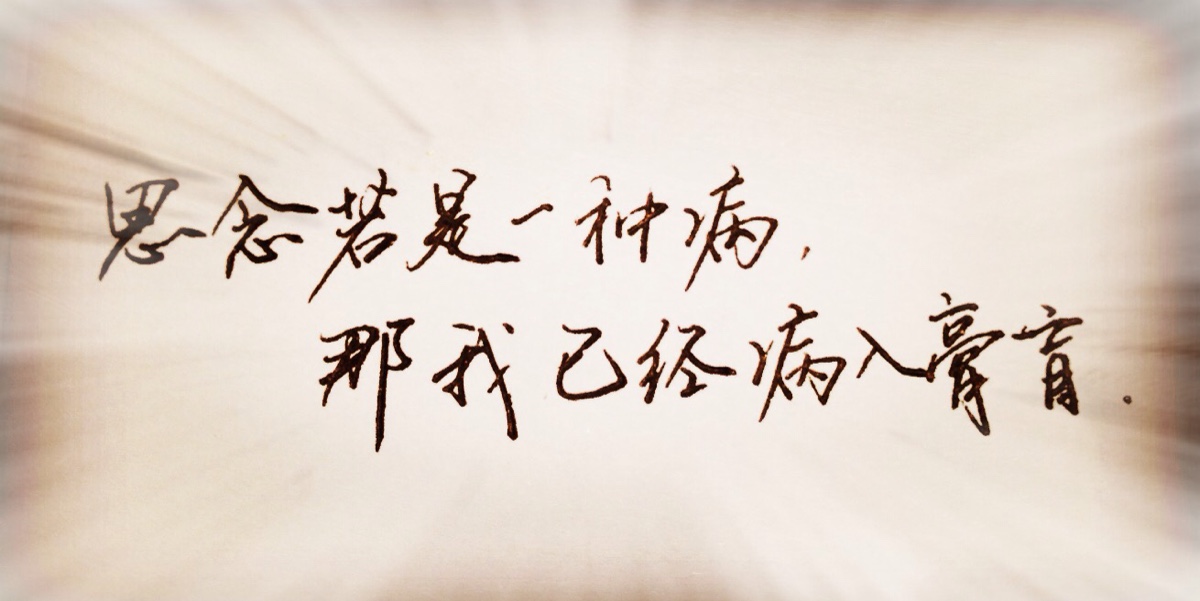 思念若是一种病，
那我已经病入膏肓.